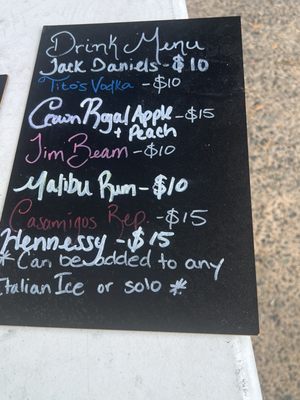 Drink Menu
Jack Daniels - $10
Tito's Vodka - $10
Crown Royal Apple - $15
+ Peach
Jim Beam - $10
Malibu Rum - $10
Casamigos Rep. - $15
Hennessy - $15
* Can be added to any
Italian Ice or solo *